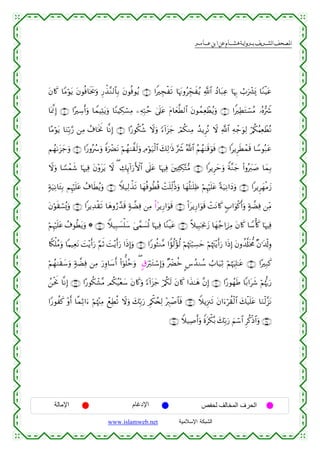 المصحف الشريف برواية هشام عن ابن عامر
عَيْنًا يَشْرَبُ بِهَا عِبَادُ ٱللَّهِ يُفَجِّرُونَهَا تَفْجِيرًا ۝ يُوفُونَ بِٱلنَّذْرِ وَيَخَافُونَ يَوْمًا كَانَ
شَرُّهُۥ مُسْتَطِيرًا ۝ وَيُطْعِمُونَ ٱلطَّعَامَ عَلَىٰ حُبِّهِۦ مِسْكِينًا وَيَتِيمًا وَأَسِيرًا ۝ إِنَّمَا
نُطْعِمُكُمْ لِوَجْهِ ٱللَّهِ لَا نُرِيدُ مِنكُمْ جَزَآءً وَلَا شُكُورًا ۝ إِنَّا نَخَافُ مِن رَّبِّنَا يَوْمًا
عَبُوسًا قَمْطَرِيرًا ۝ فَوَقَىٰهُمُ ٱللَّهُ شَرَّ ذَٰلِكَ ٱلْيَوْمِ وَلَقَّىٰهُمْ نَضْرَةً وَسُرُورًا ۝ وَجَزَىٰهُم
بِمَا صَبَرُوا۟ جَنَّةً وَحَرِيرًا ۝ مُّتَّكِـِٔينَ فِيهَا عَلَى ٱلْأَرَآئِكِ ۖ لَا يَرَوْنَ فِيهَا شَمْسًا وَلَا
زَمْهَرِيرًا ۝ وَدَانِيَةً عَلَيْهِمْ ظِلَٰلُهَا وَذُلِّلَتْ قُطُوفُهَا تَذْلِيلًا ۝ وَيُطَافُ عَلَيْهِم بِـَٔانِيَةٍ
مِّن فِضَّةٍ وَأَكْوَابٍ كَانَتْ قَوَارِيرَا۠ ۝ قَوَارِيرَا۟ مِن فِضَّةٍ قَدَّرُوهَا تَقْدِيرًا ۝ وَيُسْقَوْنَ
فِيهَا كَأْسًا كَانَ مِزَاجُهَا زَنجَبِيلًا ۝ عَيْنًا فِيهَا تُسَمَّىٰ سَلْسَبِيلًا ۝ ۞ وَيَطُوفُ عَلَيْهِمْ
وِلْدَٰنٌ مُّخَلَّدُونَ إِذَا رَأَيْتَهُمْ حَسِبْتَهُمْ لُؤْلُؤًا مَّنثُورًا ۝ وَإِذَا رَأَيْتَ ثَمَّ رَأَيْتَ نَعِيمًا وَمُلْكًا
كَبِيرًا ۝ عَٰلِيَهُمْ ثِيَابُ سُندُسٍ خُضْرٌ وَإِسْتَبْرَقٍ ۖ وَحُلُّوٓا۟ أَسَاوِرَ مِن فِضَّةٍ وَسَقَىٰهُمْ
رَبُّهُمْ شَرَابًا طَهُورًا ۝ إِنَّ هَٰذَا كَانَ لَكُمْ جَزَآءً وَكَانَ سَعْيُكُم مَّشْكُورًا ۝ إِنَّا نَحْنُ
نَزَّلْنَا عَلَيْكَ ٱلْقُرْءَانَ تَنزِيلًا ۝ فَٱصْبِرْ لِحُكْمِ رَبِّكَ وَلَا تُطِعْ مِنْهُمْ ءَاثِمًا أَوْ كَفُورًا
۝ وَٱذْكُرِ ٱسْمَ رَبِّكَ بُكْرَةً وَأَصِيلًا ۝
الحرف المخالف لحفص الإدغام الإمالة
الشبكة الإسلامية www.islamweb.net